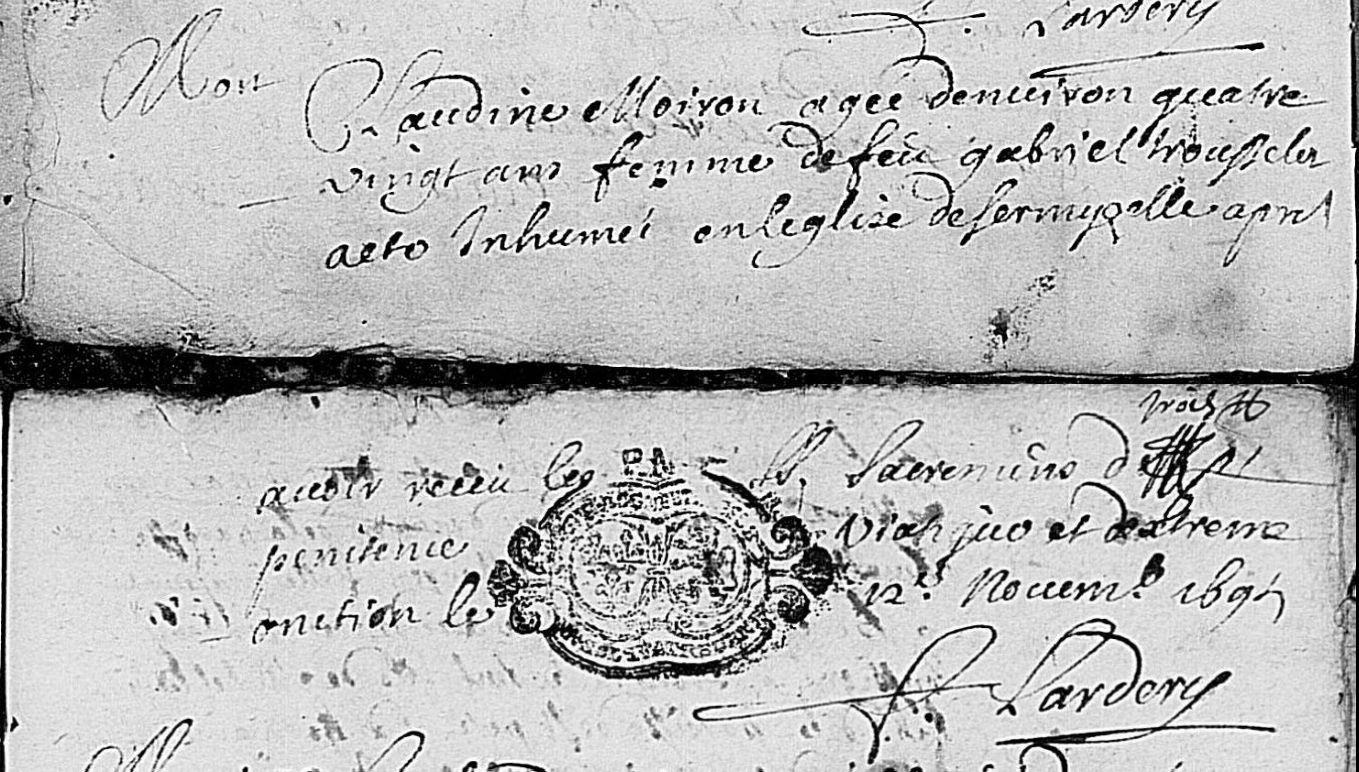 F. Lardery
Mort Claudine Moiron agee denuiron quatre
vingt ans femme de feu gabriel trousseler
a eto Inhumeé en leglise de sermyzelle apres
auoir receu les SS. Sacremens de
penitence viatique et dextreme
onction le 12e. Nouem.e 169
F. Lardery